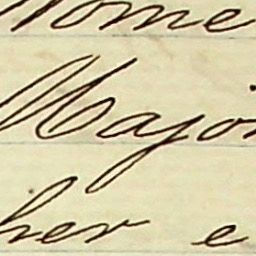 Home
Major
her e